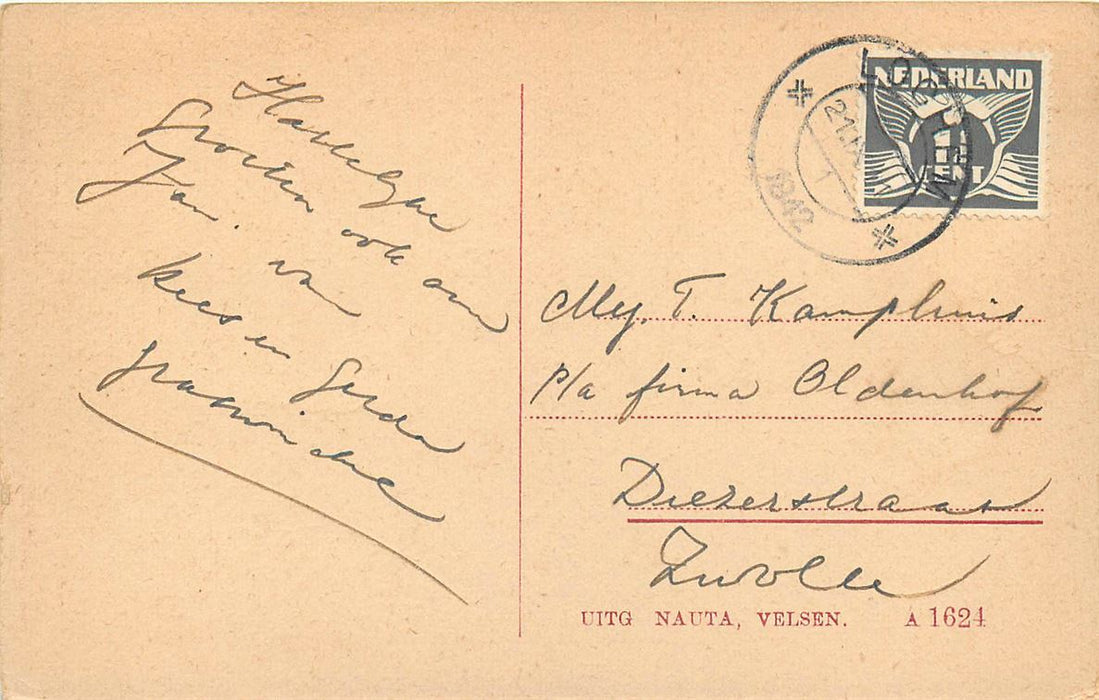 Hartelyke
Groeten ook aan
Jan van
Kees en Gerda
NEDERLAND
1½
CENT
LOCHEM
1942
Mej. T. Kamphuis
P/a firma Oldenhof
Diezerstraat
Zwolle
UITG NAUTA, VELSEN. A 1624